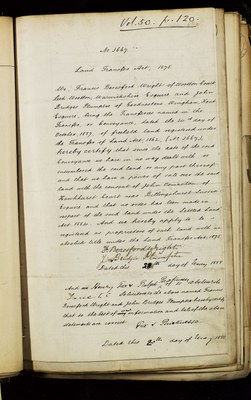 Vol. 50. p. 120.
No 1669
Land Transfer Act, 1875.
We, Francis Beresford Wright of Wootton Court
Warwickshire Esquire and John
Bridges Plumptre of Goodnestone, Wingham, Kent
Esquire, being the Transferees named in the
Transfer, or Conveyance, dated the day of
October 1887, of freehold land registered under
the Transfer of Land Act, 1862, (No 1669),
hereby certify that since the date of the said
Conveyance we have in no way dealt with or
encumbered the said land or any part thereof
and that we have a power of sale over the said
land with the consent of John
Hawkhurst Court near Billingshurst Sussex
Esquire and that no order has been made in
respect of the said land under the Settled Land
Act 1884. And we hereby apply to be
registered as proprietors of such land with an
absolute title under the Land Transfer Act, 1875.
F. Beresford Wright
John Bridges Plumptre
Dated this 28th day of 1888
And we Henry Fox & Ralph of
Solicitors to the above named Francis
Beresford Wright and John Bridges Plumptre hereby certify
that to the best of our information and belief the above
statements are correct.
Fox &
Dated this day of 1888